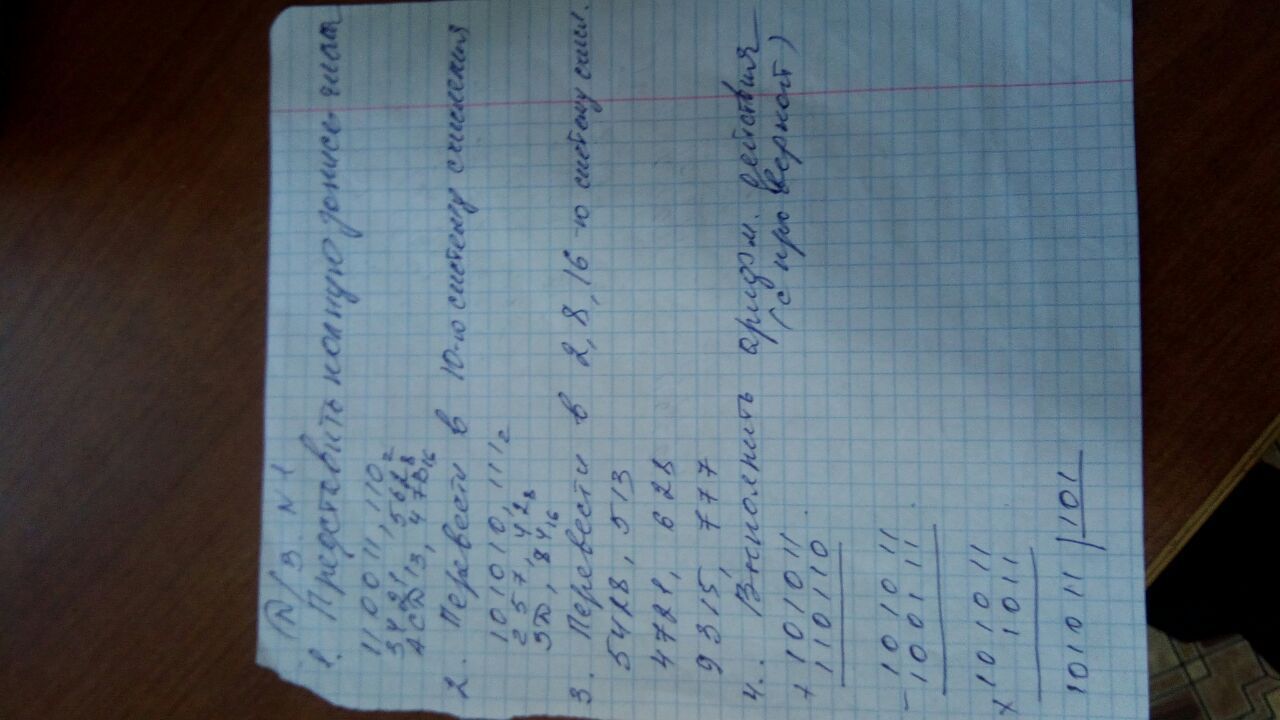 Д/З. N 1
1. Представить полную запись числа
110011,110₂
3421,562₈
АСД13,47В₁₆
2. Перевести в 10-ю систему счисления
101010,111₂
257,42₈
ЭД,84₁₆
3. Перевести в 2,8,16-ю систему счисл.
5428,513
4721,628
9315,777
4. Выполнить арифм. действия
(с проверкой)
+ 101011
110110
- 101011
100111
x 101011
1011
101011 | 101